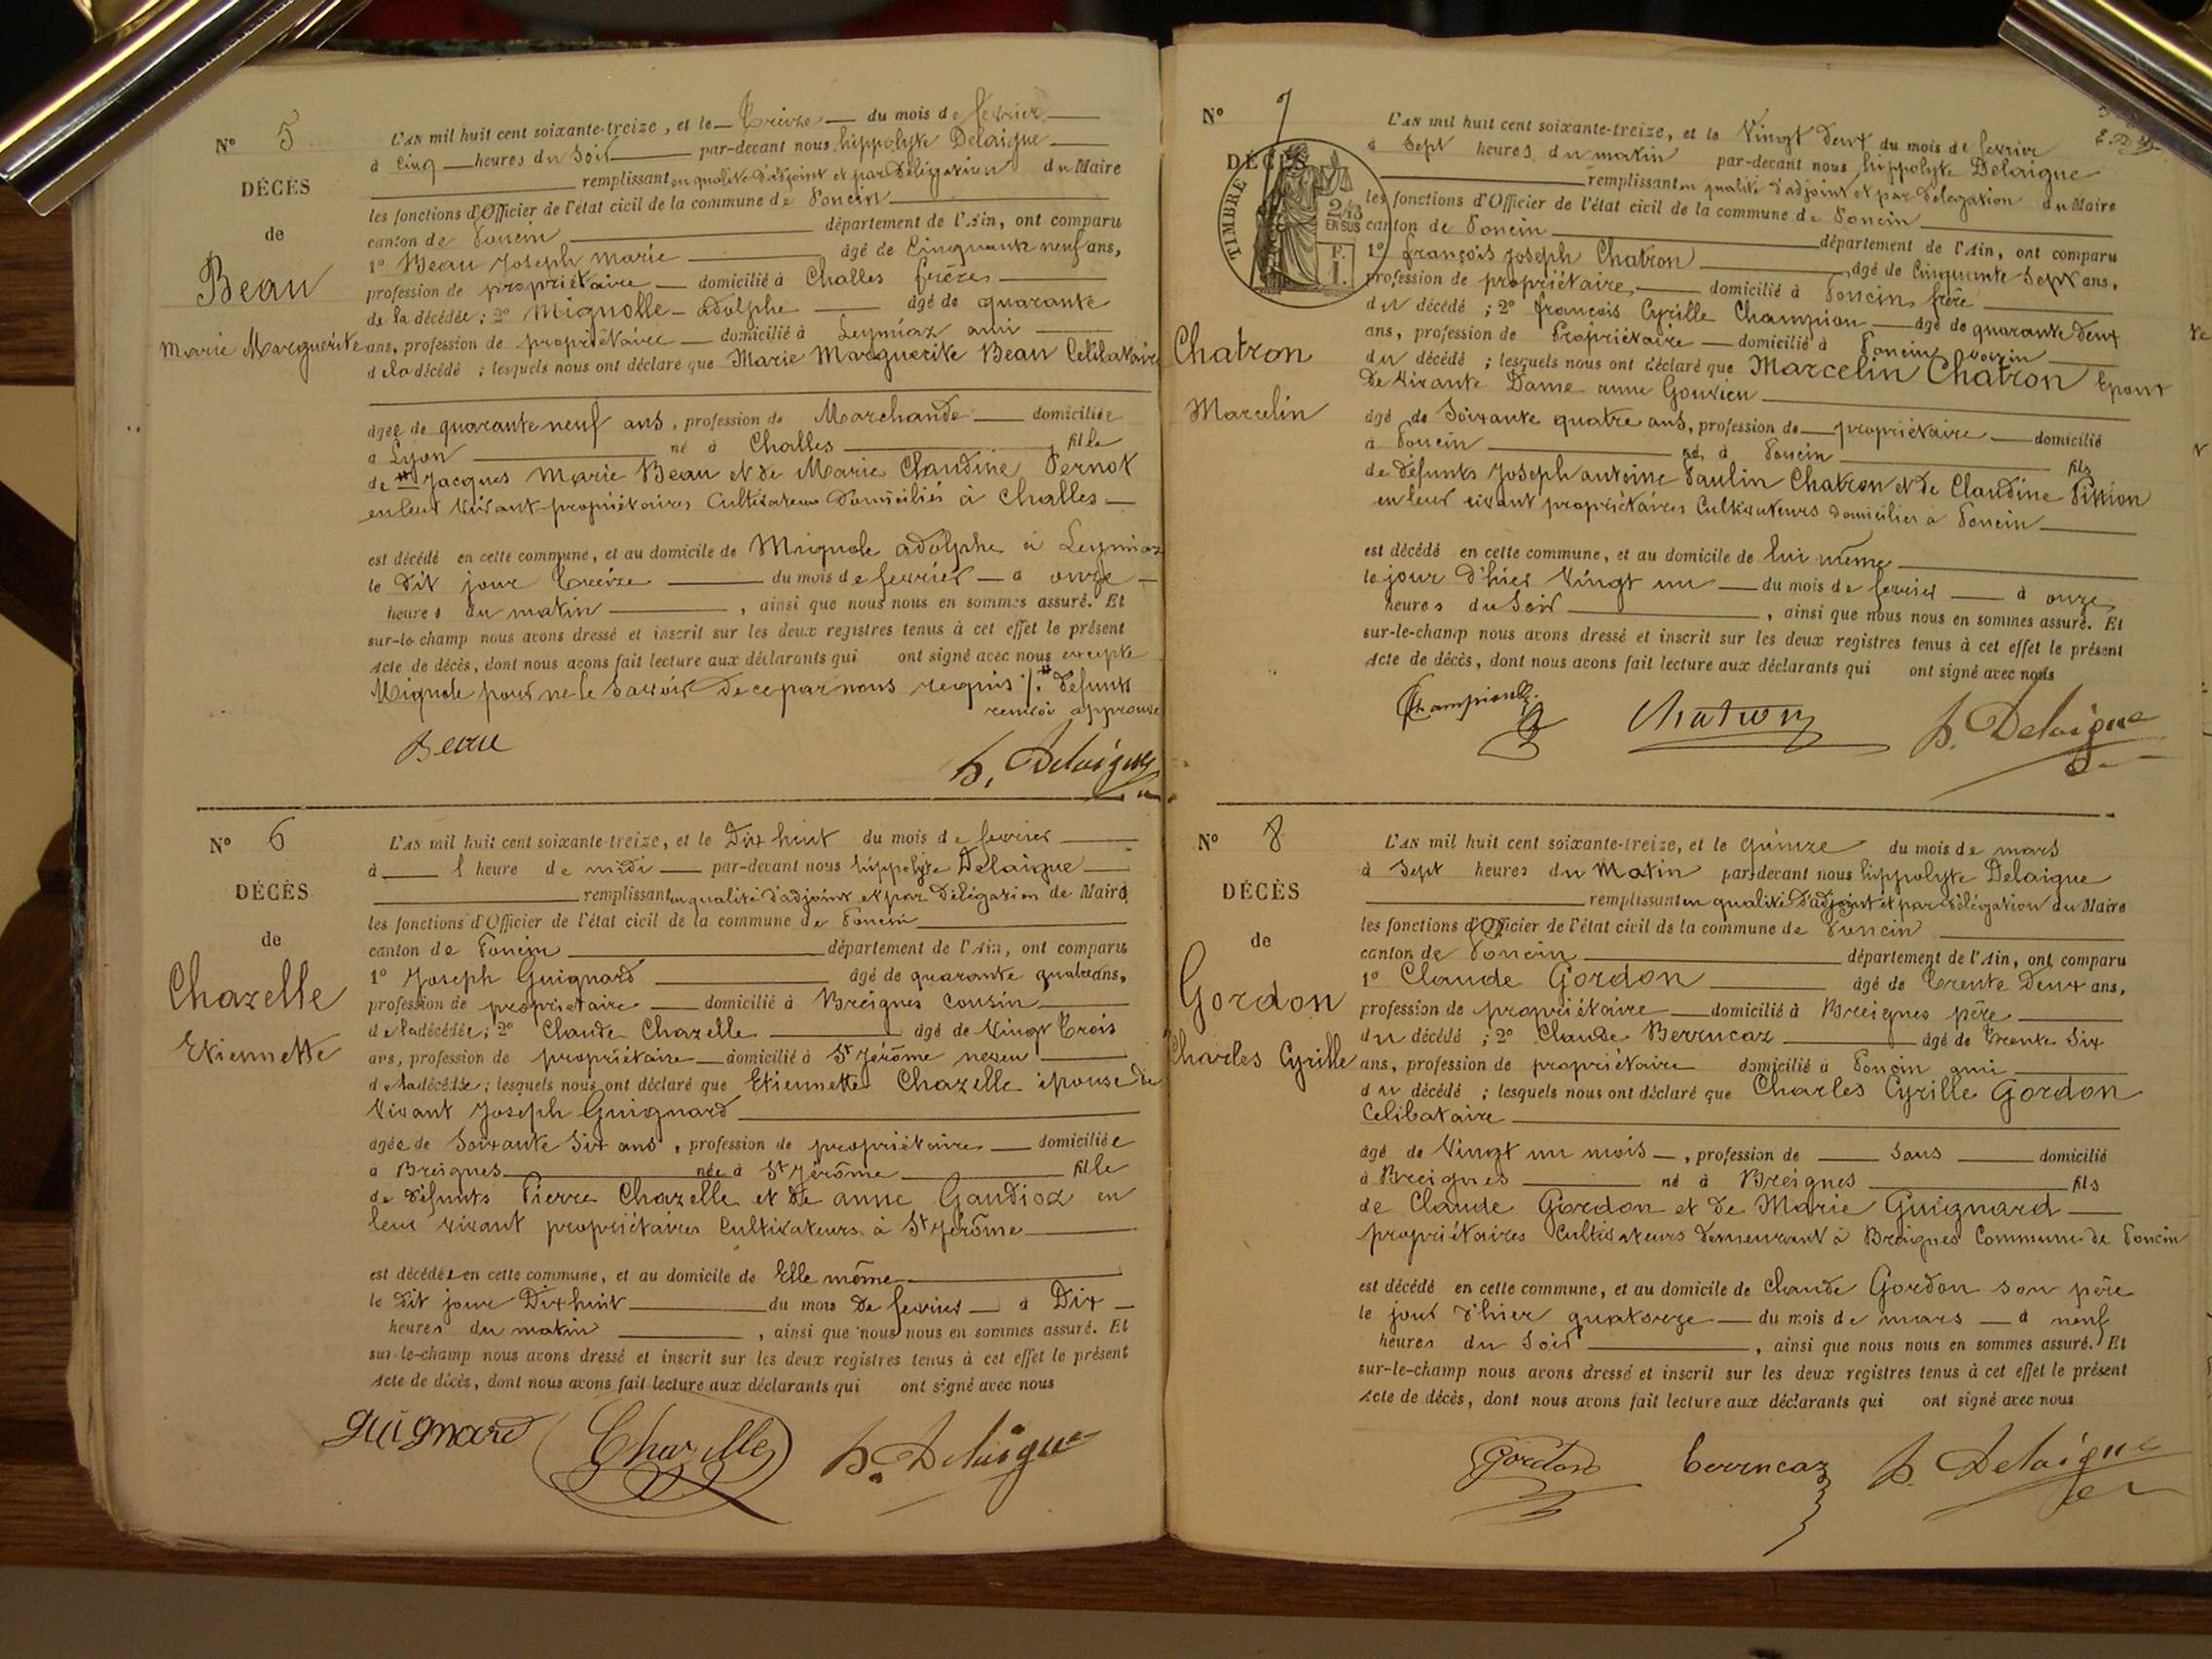 N° 5
DÉCÈS
de
Beau
Marie Marguerite
L'AN mil huit cent soixante-treize, et le Treize du mois de fevrier
à Cinq heures du Soir par-devant nous hippolyte Delaigue
remplissant en qualité d'adjoint et par Délégation du Maire
les fonctions d'Officier de l'état civil de la commune de Poncin
canton de Poncin département de l'Ain, ont comparu
1° Beau Joseph Marie âgé de Cinquante neuf ans,
profession de propriétaire domicilié à Challes frère
de la décédée ; 2° Mignolle adolphe âgé de quarante
ans, profession de propriétaire domicilié à Leymiaz ami
de la décédé ; lesquels nous ont déclaré que Marie Marguerite Beau Celibataire
âgée de quarante neuf ans, profession de Marchande domiciliée
à Lyon né à Challes fille
de # Jacques Marie Beau et de Marie Claudine Pernot
en leur Vivant propriétaires Cultivateurs Domiciliés à Challes
est décédé en cette commune, et au domicile de Mignole adolphe à Leymiaz
le Dit jour Treize du mois de fevrier à onze
heures du matin , ainsi que nous nous en sommes assuré. Et
sur-le-champ nous avons dressé et inscrit sur les deux registres tenus à cet effet le présent
Acte de décès, dont nous avons fait lecture aux déclarants qui ont signé avec nous excepté
Mignole pour ne le Savoir De ce par nous requis /. # Defunts
renvoi approuvé
Beau
h. Delaigue
N° 6
DÉCÈS
de
Chazelle
Etiennette
L'AN mil huit cent soixante-treize, et le Dix huit du mois de fevrier
à 1 heure de midi par-devant nous hippolyte Delaigue
remplissant en qualité d'adjoint et par Délégation de Maire
les fonctions d'Officier de l'état civil de la commune de Poncin
canton de Poncin département de l'Ain, ont comparu
1° Joseph Guignard âgé de quarante quatre ans,
profession de propriétaire domicilié à Breignes Cousin
de la décédée ; 2° Claude Chazelle âgé de Vingt Trois
ans, profession de propriétaire domicilié à St Jérôme neveu
de la décédée ; lesquels nous ont déclaré que Etiennette Chazelle épouse de
Vivant Joseph Guignard
âgée de Soixante Six ans, profession de propriétaire domiciliée
à Breignes née à St Jérôme fille
de défunts Pierre Chazelle et de anne Gaudioz en
leur vivant propriétaires Cultivateurs à St Jérôme
est décédée en cette commune, et au domicile de Elle même
le Dit jour Dix huit du mois De fevrier à Dix
heures du matin , ainsi que nous nous en sommes assuré. Et
sur-le-champ nous avons dressé et inscrit sur les deux registres tenus à cet effet le présent
Acte de décès, dont nous avons fait lecture aux déclarants qui ont signé avec nous
guignard Chazelle h. Delaigue
N° 7
DÉCÈS
TIMBRE
2/10
EN SUS
F.
1.
Chatron
Marcelin
L'AN mil huit cent soixante-treize, et le Vingt Deux du mois de fevrier
à Sept heures du matin par-devant nous hippolyte Delaigue
remplissant en qualité d'adjoint et par Délégation du Maire
les fonctions d'Officier de l'état civil de la commune de Poncin
canton de Poncin département de l'Ain, ont comparu
1° françois Joseph Chatron âgé de Cinquante Sept ans,
profession de propriétaire domicilié à Poncin frère
du décédé ; 2° françois Cyrille Champion âgé de quarante Deux
ans, profession de Propriétaire domicilié à Poncin voisin
du décédé ; lesquels nous ont déclaré que Marcelin Chatron Epoux
De Vivante Dame anne Gouvieu
âgé de Soixante quatre ans, profession de propriétaire domicilié
à Poncin né à Poncin fils
de Défunts Joseph antoine Paulin Chatron et de Claudine Pittion
en leur vivant propriétaires Cultivateurs Domiciliés à Poncin
est décédé en cette commune, et au domicile de lui même
le jour d'hier Vingt un du mois de fevrier à onze
heures du Soir , ainsi que nous nous en sommes assuré. Et
sur-le-champ nous avons dressé et inscrit sur les deux registres tenus à cet effet le présent
Acte de décès, dont nous avons fait lecture aux déclarants qui ont signé avec nous
Champion Chatron h. Delaigue
N° 8
DÉCÈS
de
Gordon
Charles Cyrille
L'AN mil huit cent soixante-treize, et le quinze du mois de mars
à Sept heures du Matin par-devant nous hippolyte Delaigue
remplissant en qualité d'adjoint et par délégation du Maire
les fonctions d'Officier de l'état civil de la commune de Poncin
canton de Poncin département de l'Ain, ont comparu
1° Claude Gordon âgé de Trente Deux ans,
profession de propriétaire domicilié à Breignes père
du décédé ; 2° Claude Berrucaz âgé de Trente Six
ans, profession de propriétaire domicilié à Poncin ami
du décédé ; lesquels nous ont déclaré que Charles Cyrille Gordon
Celibataire
âgé de Vingt un mois, profession de Sans domicilié
à Breignes né à Breignes fils
de Claude Gordon et de Marie Guignard
propriétaires Cultivateurs demeurant à Breignes Commune de Poncin
est décédé en cette commune, et au domicile de Claude Gordon son père
le jour d'hier quatorze du mois de mars à neuf
heures du Soir , ainsi que nous nous en sommes assuré. Et
sur-le-champ nous avons dressé et inscrit sur les deux registres tenus à cet effet le présent
Acte de décès, dont nous avons fait lecture aux déclarants qui ont signé avec nous
Gordon berrucaz h. Delaigue